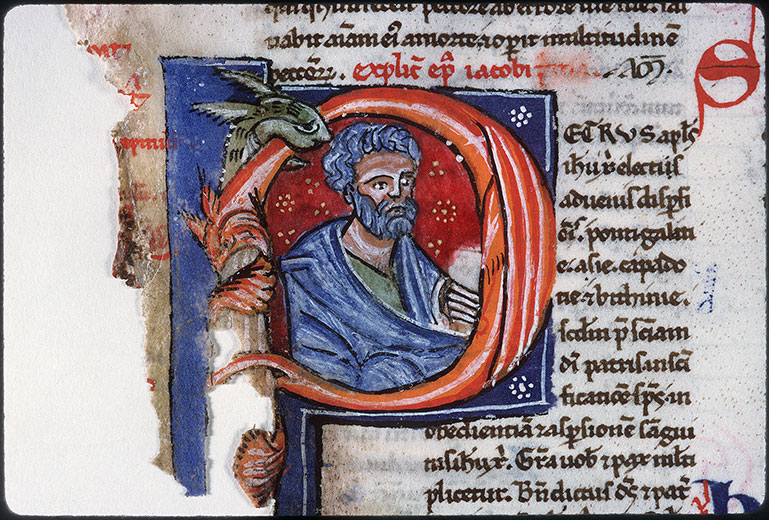 ab errore uie sue. sal
uabit aĩam eiꝰ a morte ⁊ opit multitudinẽ
peccatoꝝ. explic̃ ep̃l iacobi
PETRVS apl̃s
ih̃u xp̃i electis
aduenis disp̃si
õis. ponti galati
e. asie. capado
cie ⁊ bithinie.
scdm̃ p̃ sciam
dĩ patris. in scĩ
ficatiõe sp̃s. in
obedientiã ⁊ asp̃sionẽ sãgui
nis ih̃u xp̃i. Gr̃a uob̃ ⁊ pax multi
plicetur. Bñdictus d̃s ⁊ pat̃